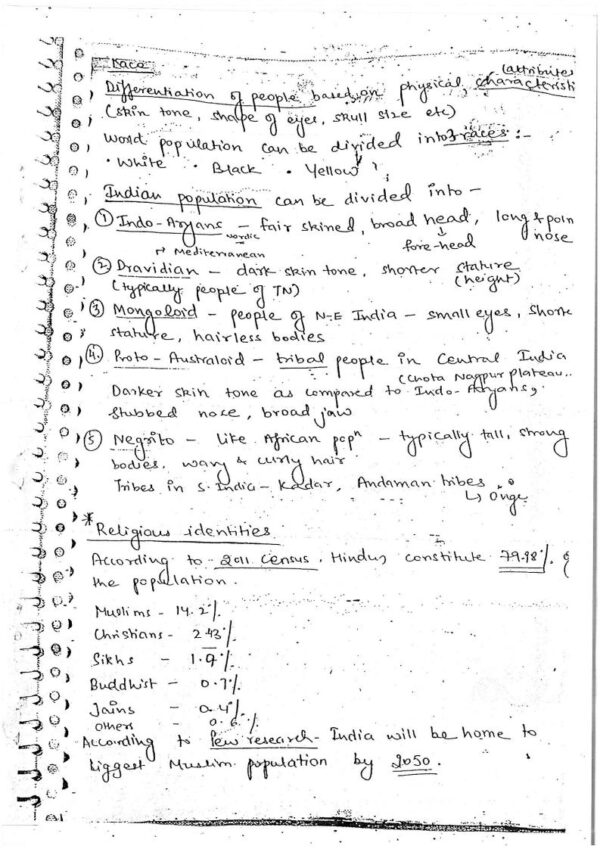 Race
(attributes
Differentiation of people based on physical characteristi
(skin tone, shape of eyes, skull size etc)
World population can be divided into 3 races :-
• White • Black • Yellow
Indian population can be divided into -
① Indo-Aryans - fair skined, broad head, long & poin
nordic
nose
↱ Mediterranean
fore-head
② Dravidian - dark skin tone, shorter stature
(typically people of TN) (height)
③ Mongoloid - people of N-E India - small eyes, short
stature, hairless bodies
④ Proto-Australoid - tribal people in Central India
(Chota Nagpur plateau..
Darker skin tone as compared to Indo-Aryans,
Stubbed nose, broad jaw
⑤ Negrito - like African popn - typically tall, strong
bodies, wavy & curly hair
Tribes in S. India - Kadar, Andaman tribes
↳ Onge
* Religious identities
According to 2011 Census, Hindus constitute 79.98%. of
the population.
Muslims - 14.2%.
Christians - 2.43%.
Sikhs - 1.9%.
Buddhist - 0.7%.
Jains - 0.4%.
Others - 0.6%.
According to Pew research - India will be home to
biggest Muslim population by 2050.